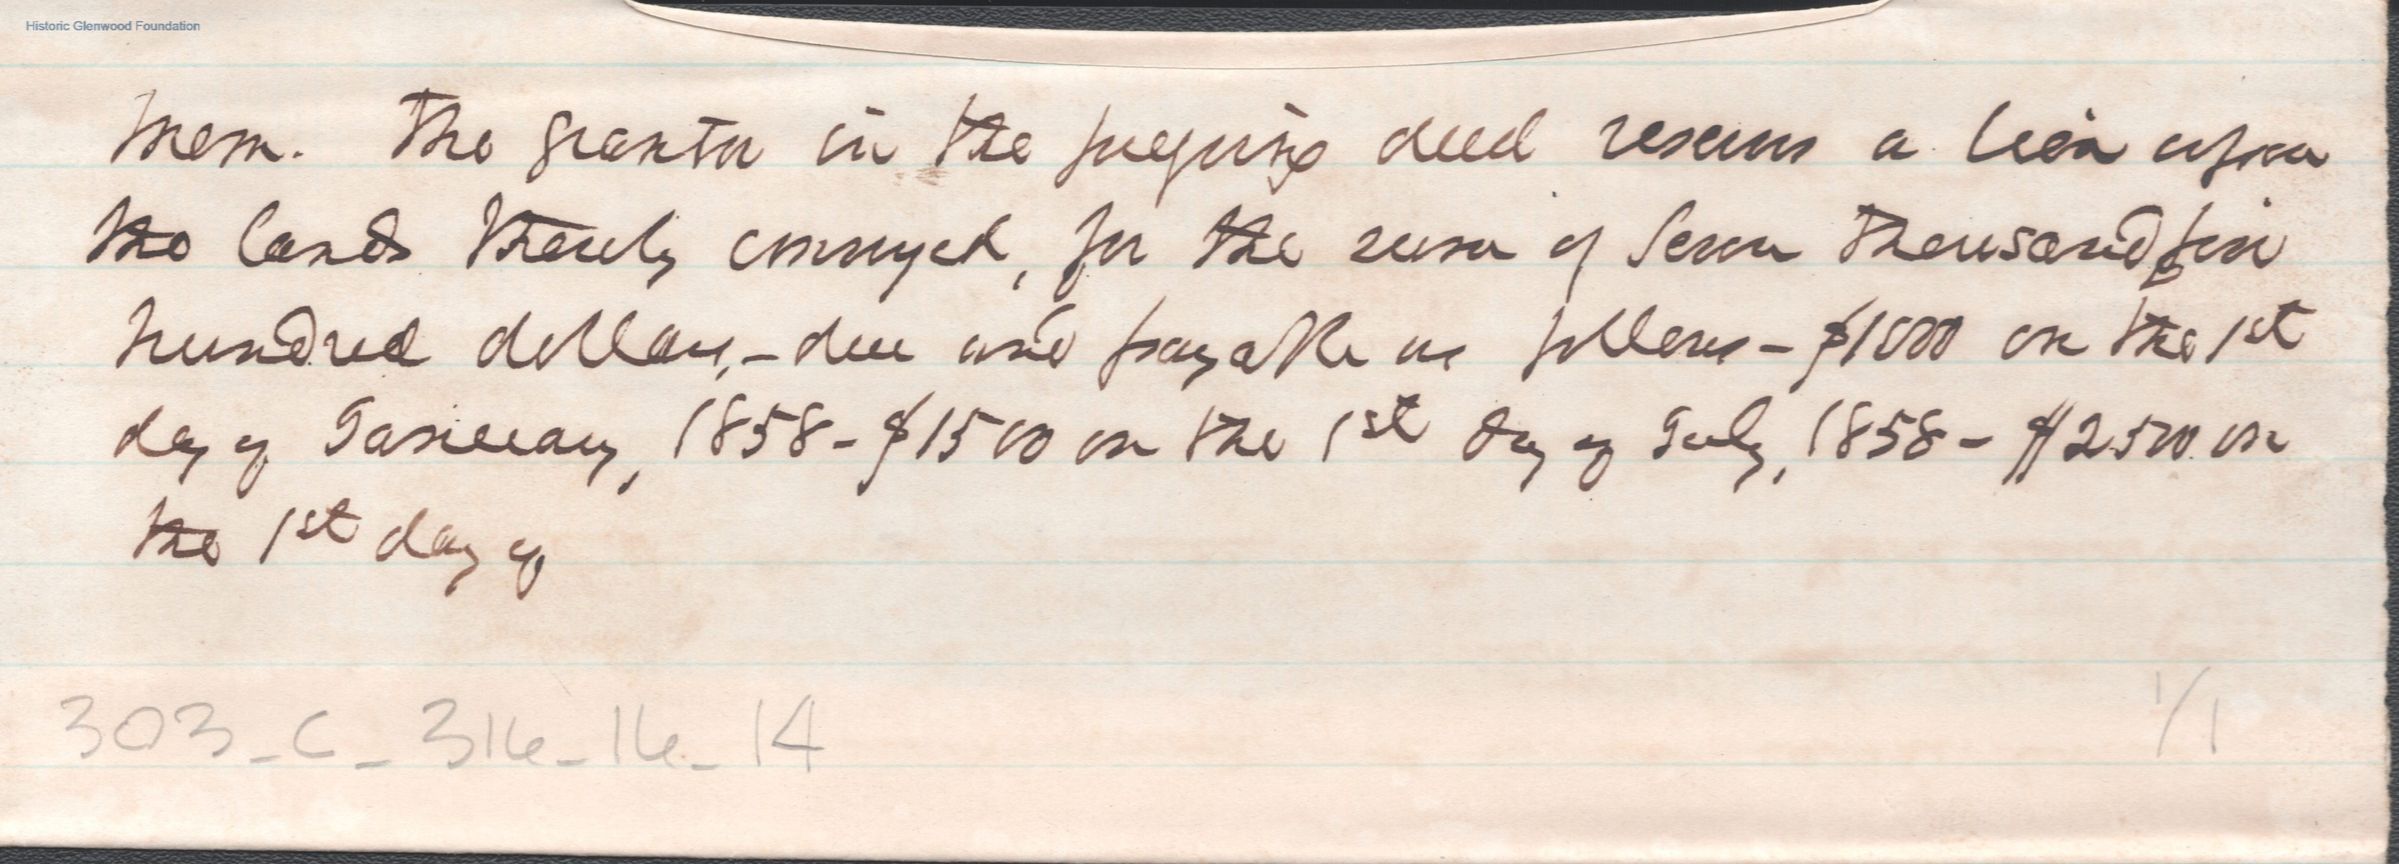 Historic Glenwood Foundation
Mem. The grantor in the foregoing deed reserves a lien upon
the lands thereby conveyed, for the sum of Seven thousand five
hundred dollars,- due and payable as follows - $1000 on the 1st
day of January, 1858 - $1500 on the 1st day of July, 1858 - $2500 on
the 1st day of
303-C-316-16-14
1/1